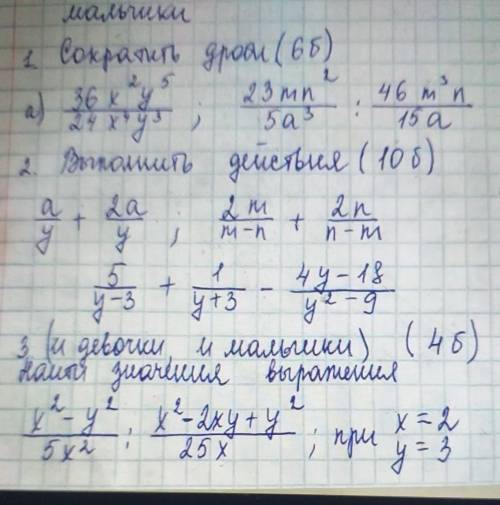 мальчики
1. Сократить дроби (6б)
а) 36x²y⁵/24x⁴y³ ; 23mn²/5a³ : 46m³n/15a
2. Выполнить действия (10б)
a/y + 2a/y ; 2m/(m-n) + 2n/(n-m)
5/(y-3) + 1/(y+3) - (4y-18)/(y²-9)
3 (и девочки и мальчики) (4б)
Найти значения выражения
(x²-y²)/5x² : (x²-2xy+y²)/25x ; при x=2
y=3